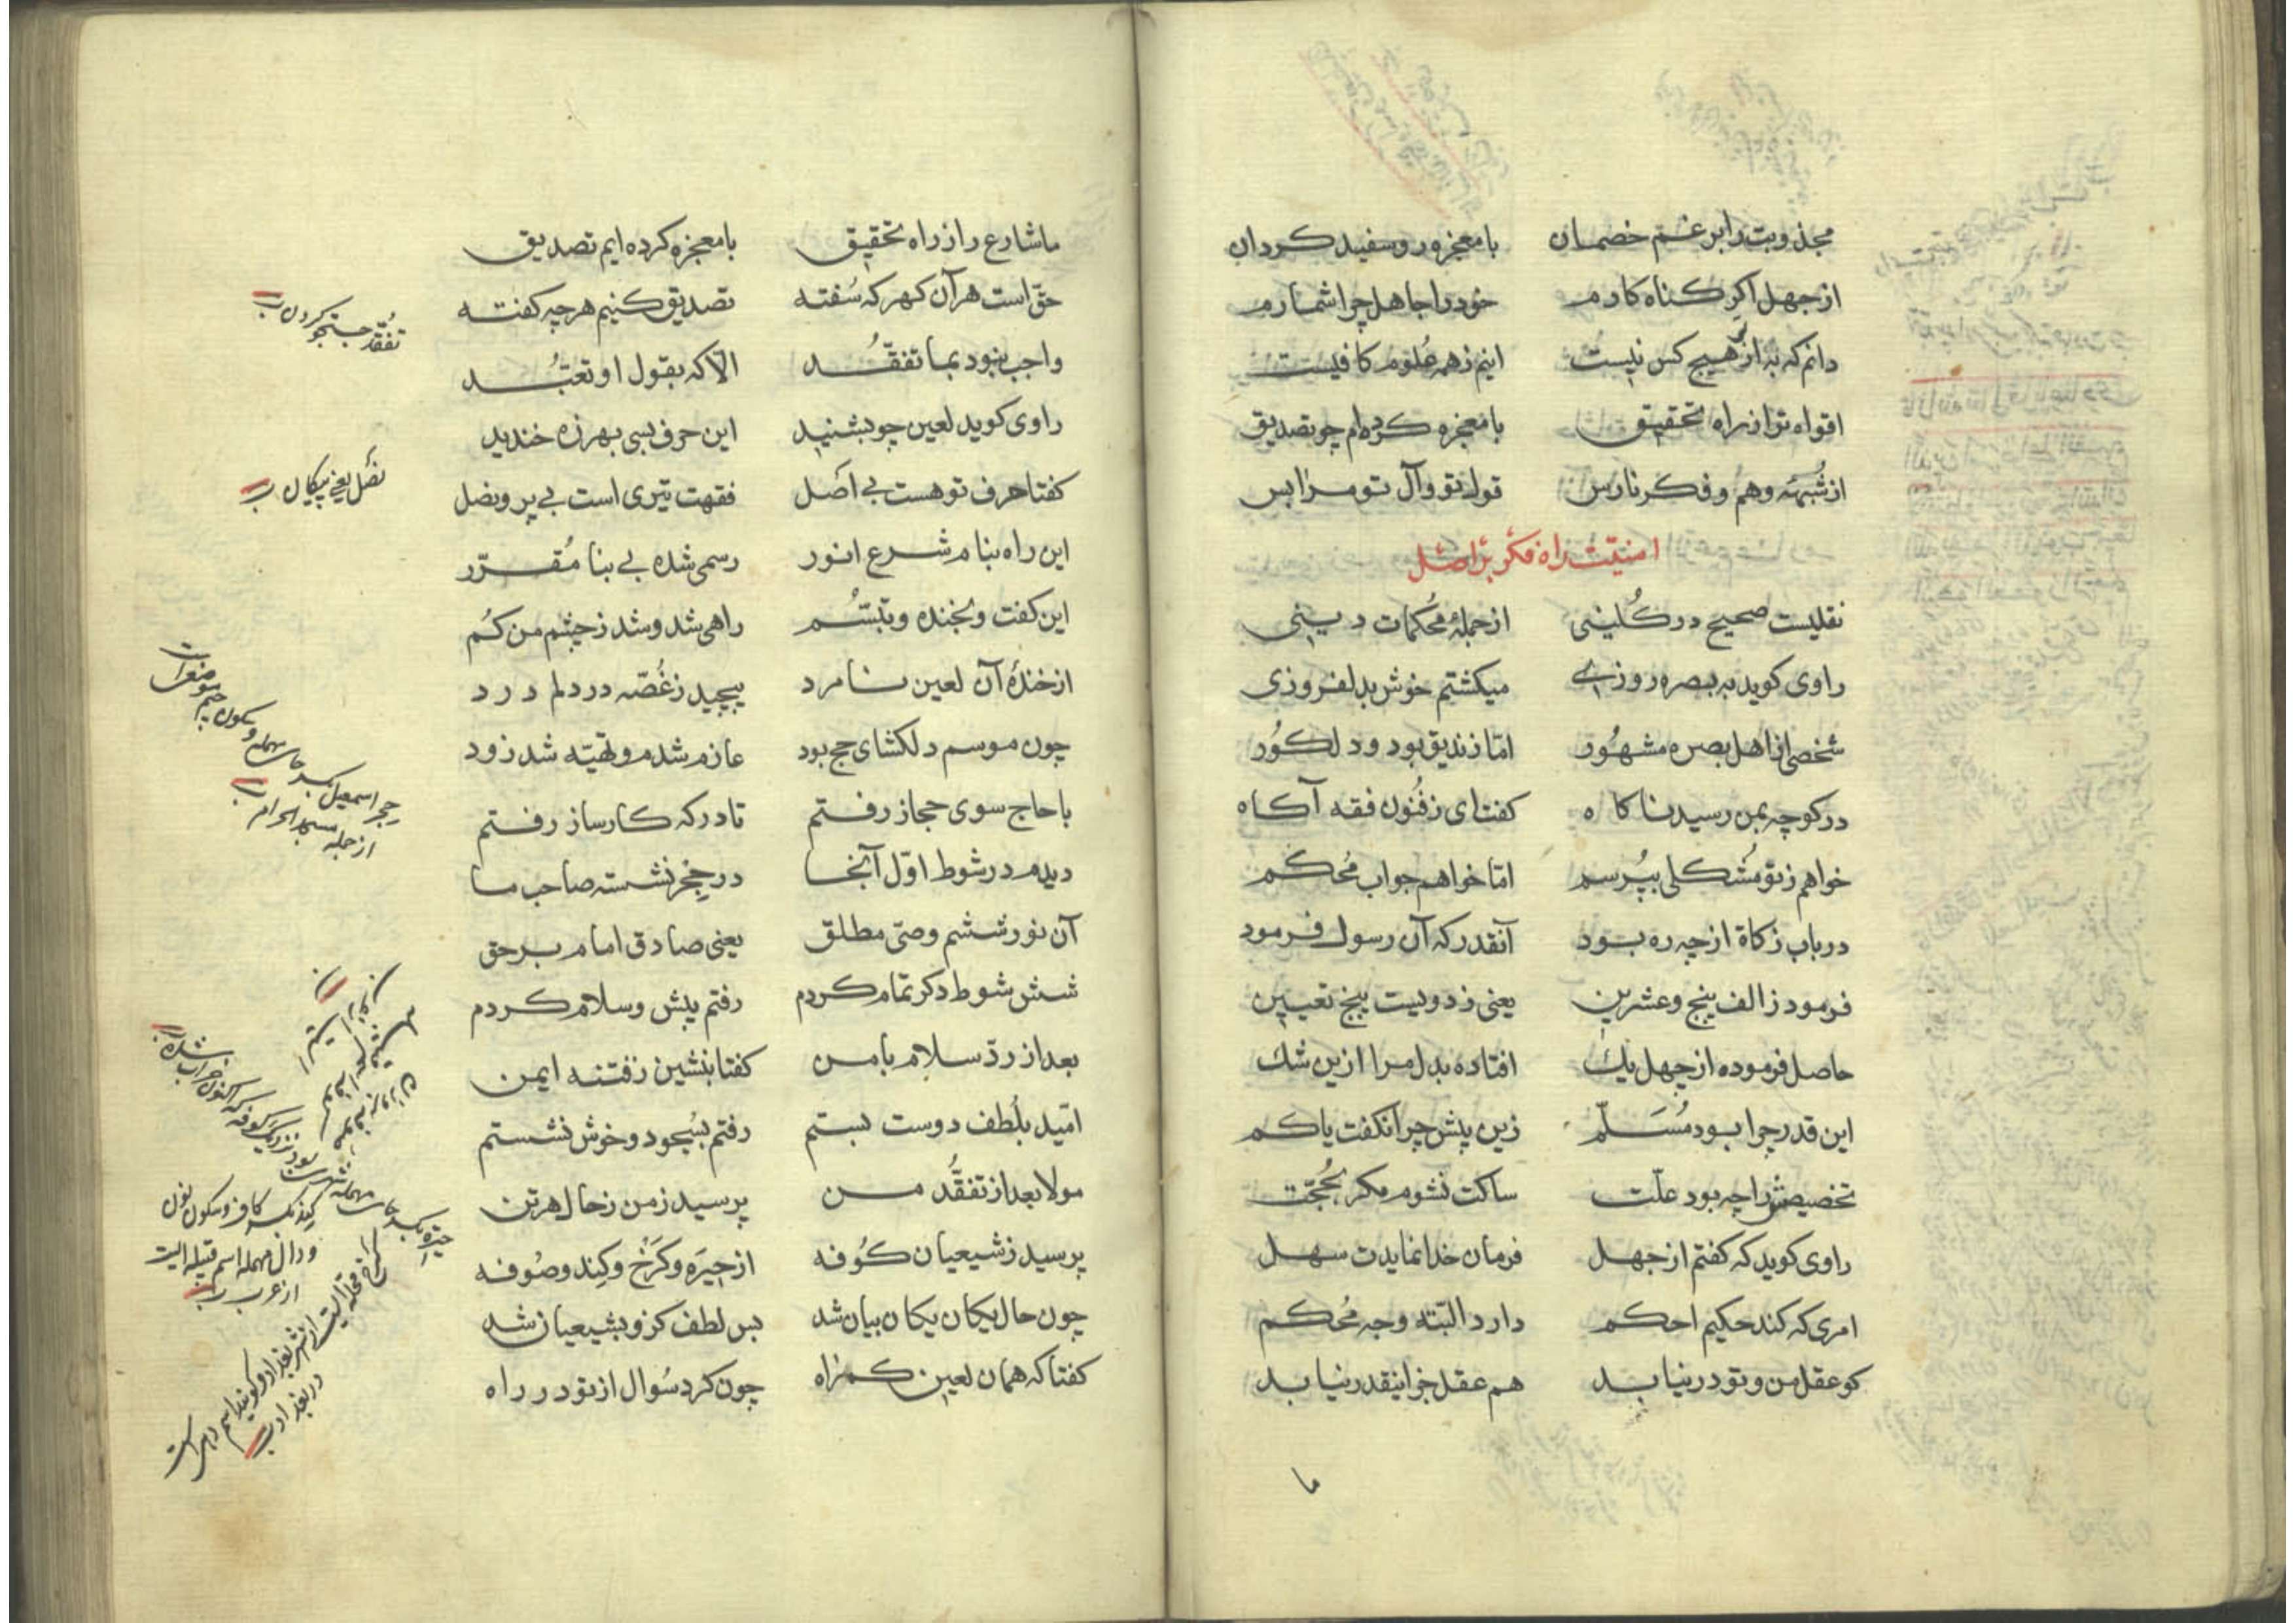 مجذوبت را بر غم خصمان بامعجزه روسفید کردان
از جهل اکر کناه کارم خود را جاهل چرا شمارم
دانم که به از هیچ کس نیست اینم ز همه علوم کافیست
اقواه تو از راه تحقیق بامعجزه کرده‌ام چو تصدیق
از شُبهَه وهم و فکر نارس قول تو و آل تو مرا بس
امنیّت راه فکر بر اصل
نقلیست صحیح در کُلینی از جملهٔ مُحکمات دینی
راوی کوید به بصره روزی میکشتم خوش بدلفروزی
شخصی از اهل بصره مشهُور امّا زندیق بود و دلکُور
در کوچه بمن رسید ناکاه کفت ای ز فُنون فقه آکاه
خواهم ز تو مُشکلی بپُرسم امّا خواهم جواب مُحکم
در باب زکاة از چه ره بود آنقدر که آن رسول فرمود
فرمود ز الف پنج و عشرین یعنی ز دویست پنج تعیین
حاصل فرموده از چهل یک افتاده بدل مرا ازین شک
این قدر چرا بود مُسَلّم زین پیش چرا نکفت یا کم
تخصیصش را چه بود علّت ساکت نشوم مکر بحُجّت
راوی کوید که کفتم از جهل فرمان خدا نمایدت سهل
امری که کند حکیم احکم دارد البتّه وجه مُحکم
کو عقل من و تو در نیابد هم عقل جز اینقدر نیابد
ما
ما شارع را ز راه تحقیق بامعجزه کرده ایم تصدیق
حقّ است هر آن کهر که سُفته تصدیق کنیم هر چه کفته
واجب نبود بما تفقُّد الّا که بقول او تعبُّد
راوی کوید لعین چو بشنید این حرف بسی بهرزه خندید
کفتا حرف تو هست بی اصل فقهت تیری است بی پر و نصل
این راه بنام شرع انور رسمی شده بی بنا مُقرّر
این کفت و بخنده و تبسّم راهی شد و شد ز چشم من کُم
از خندهٔ آن لعین نامرد پیچید ز غُصّه در دلم درد
چون موسم دلکشای حج بود عازم شدم و تهیّه شد زود
با حاج سوی حجاز رفتم تا درکه کارساز رفتم
دیدم در شوط اوّل آنجا در حِجر نشسته صاحب ما
آن نور ششم وصیّ مطلق یعنی صادق امام بر حق
شش شوط دکر تمام کردم رفتم پیش و سلام کردم
بعد از ردّ سلام با من کفتا بنشین ز فتنه ایمن
امّید بلُطف دوست بستم رفتم بسُجود و خوش نشستم
مولا بعد از تفقُّد من پرسید ز من ز حال هر تن
پرسید ز شیعیان کُوفه از حِیرَه و کَرْخ و کِند و صُوفه
چون حال یکان یکان بیان شد بس لطف کزو بشیعیان شد
کفتا که همان لعین کمراه چون کرد سُوال از تو در راه
تفُقّد جستجو کردن
نصل یعنی پیکان
حجر اسمعیل بکسر حاء مهمله و سکون جیم موضعی است
از جمله مسجد الحرام
حیره بکسر حاء مهمله شهری بود نزدیک کوفه که اکنون خراب شده
کِند بکسر کاف و سکون نون
و دال مهمله اسم قبیله ایست
از عرب
کرخ محله ایست از شهر بغداد و کویند اسم دهی است
در بغداد